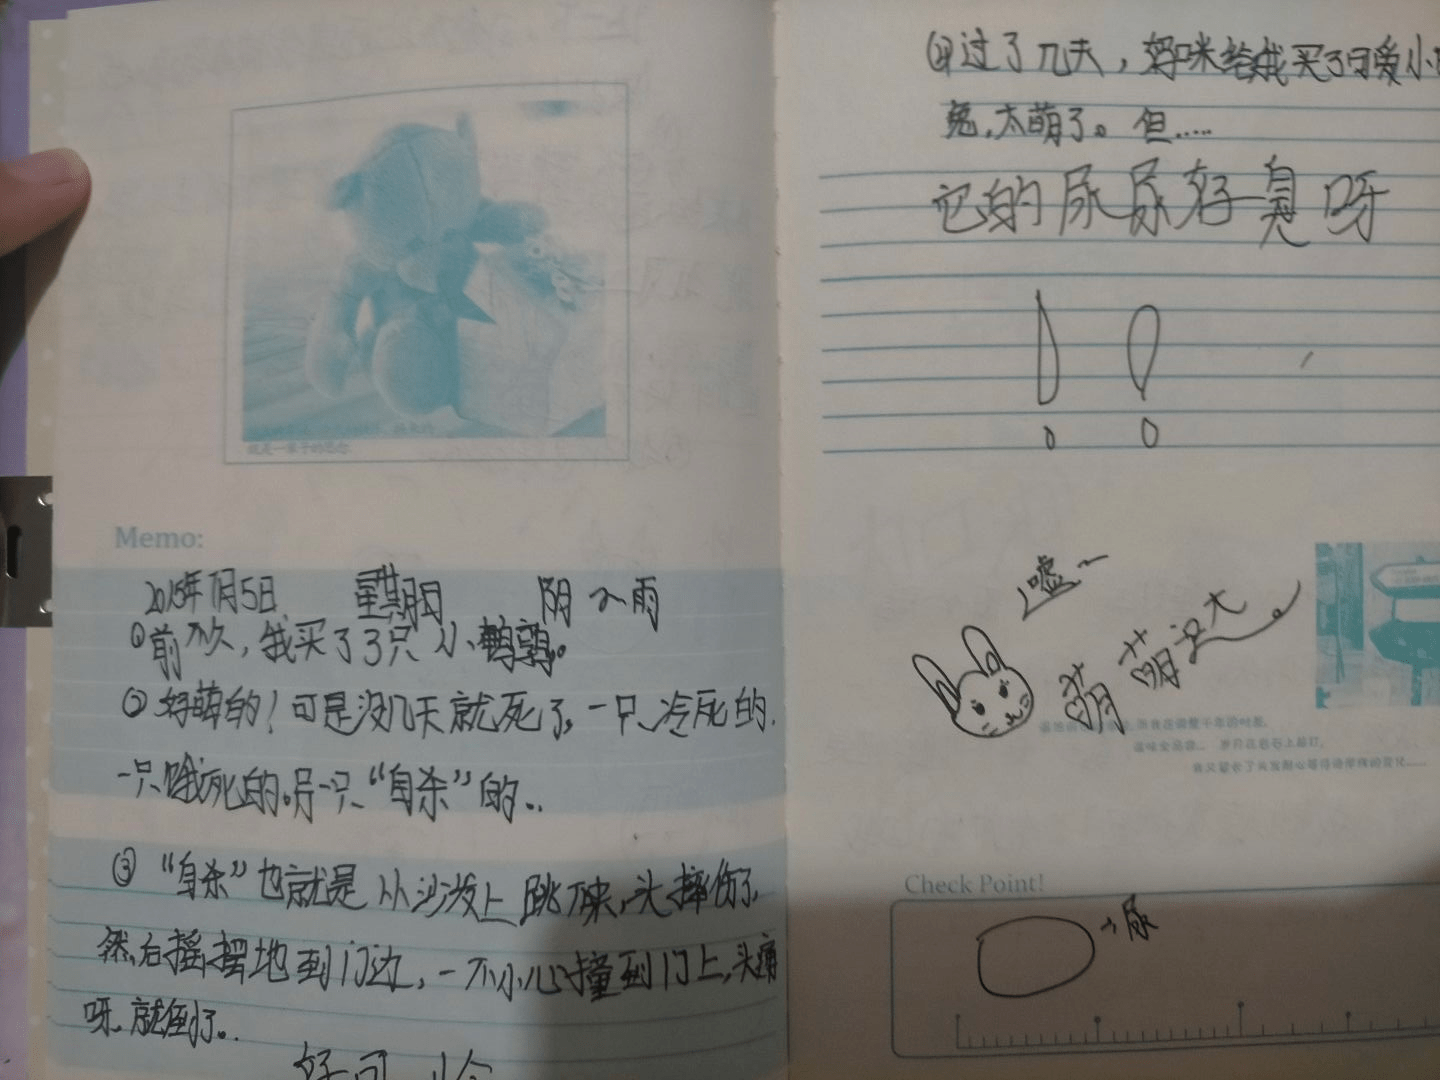 就是一辈子的思念
Memo:
2015年1月5日 星期一 阴 小雨
①前不久，我买了3只小鹌鹑。
②好萌的！可是没几天就死了，一只冷死的，
一只饿死的。另一只“自杀”的..
③“自杀”也就是从沙发上跳下来，头摔伤了，
然后摇摇摆地到门边，一不小心撞到门上，头痛
呀，就倒了..
好可怜
④过了几天，妈咪给我买了可爱小
兔，太萌了。但.....
它的尿尿好臭呀
!!
嘘~
萌萌哒
Check Point!
尿